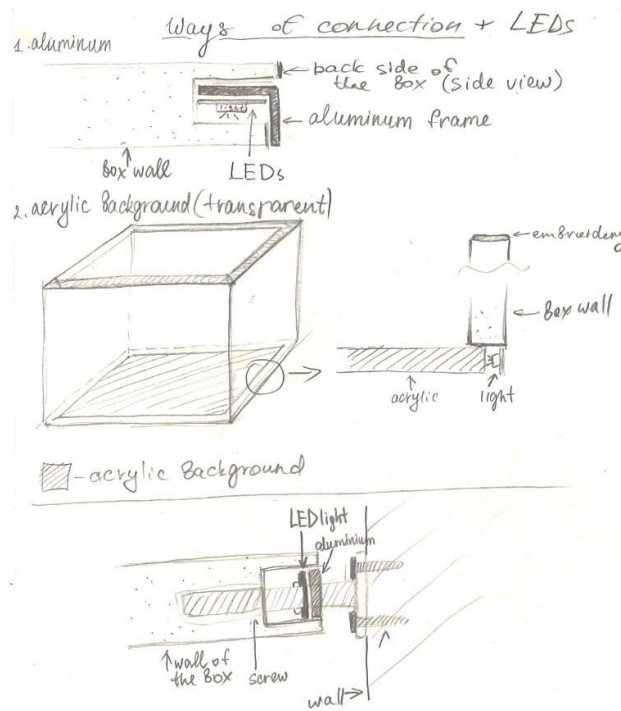 Ways of connection + LEDs
1. aluminum
back side of
the Box (side view)
light
aluminum frame
Box wall
LEDs
2. acrylic Background (transparent)
Box wall
acrylic
light
- acrylic Background
LED light
aluminium
wall of
the Box
screw
wall